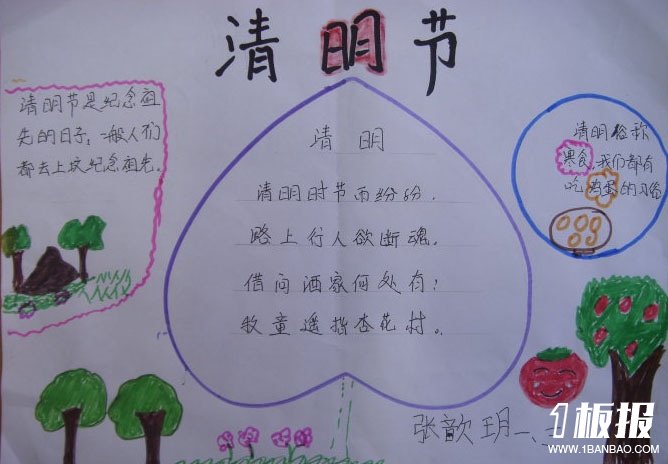 清明节
清明节是纪念祖
先的日子，一般人们
都去上坟纪念祖先。
清明
清明时节雨纷纷.
路上行人欲断魂。
借问酒家何处有?
牧童遥指杏花村。
清明俗称
寒食.我们都有
吃鸡蛋的习俗
张歆玥一、
1板报
WWW.1BANBAO.COM